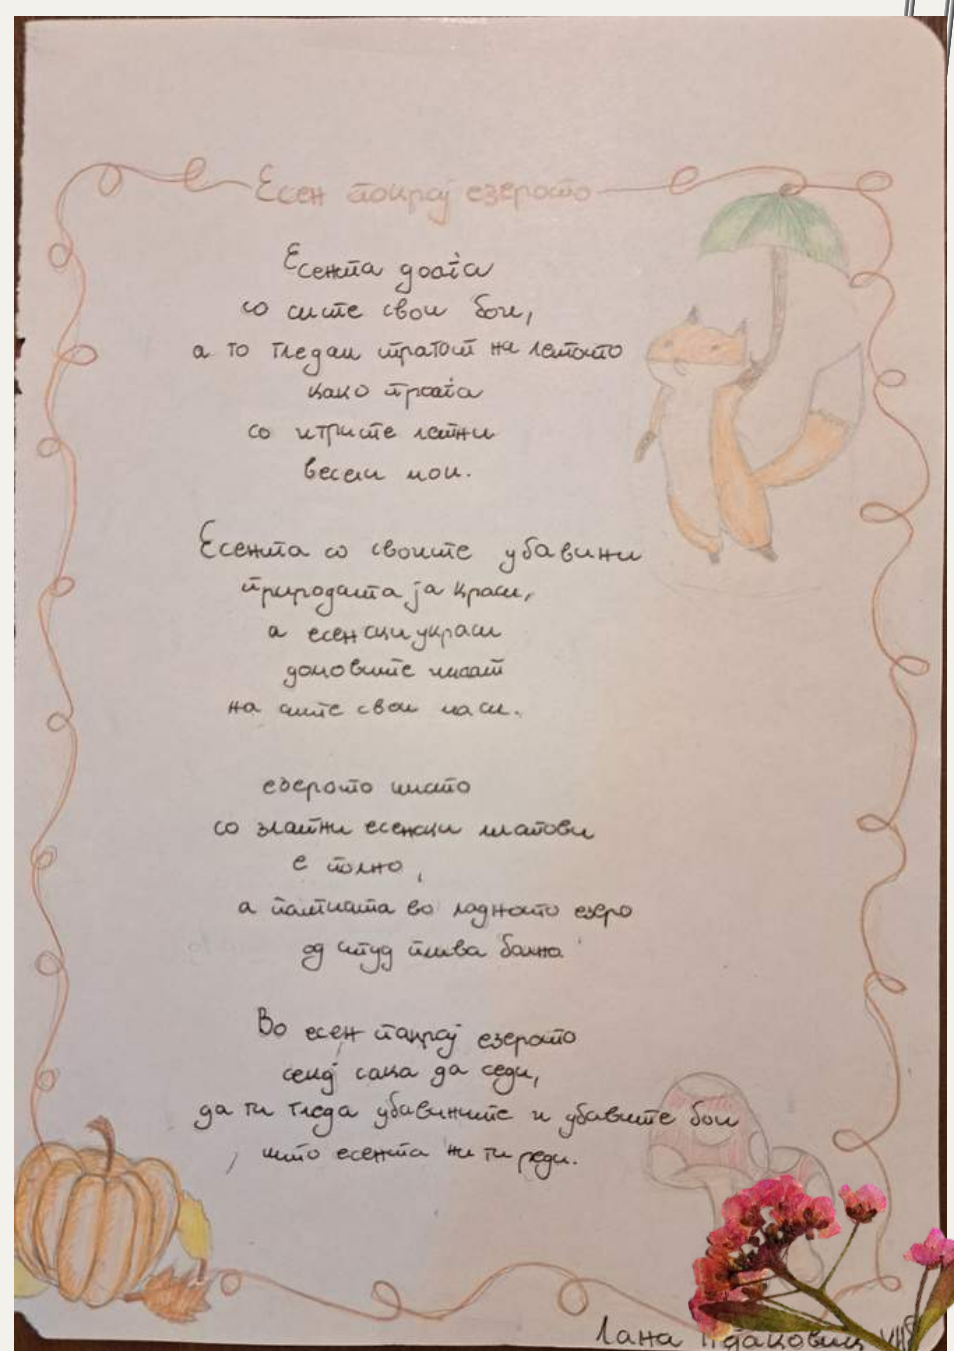 Есен покрај езерото
Есента доаѓа
со сите свои бои,
а го гледаш крајот на летото
како троаѓа
со игрите летни
весели мои.
Есента со своите убавини
природата ја краси,
а есенски украси
домовите чисат
на сите свои маси.
езерото чисто
со златни есенски листови
е полно,
а патката во ладното езеро
од студ плива болно
Во есен покрај езерото
секој сака да седи,
да ги гледа убавините и убавите бои
што есента ни ги реди.
Лана